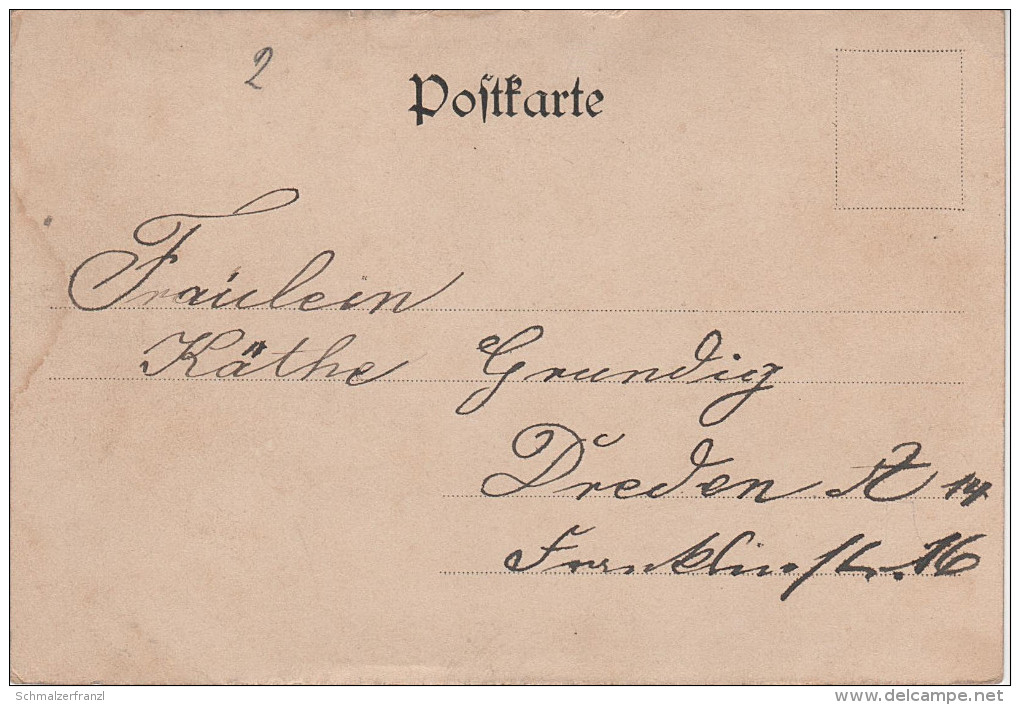 2
Postkarte
Fräulein
Käthe Grundig
Dreden A 14
Franklinstr. 16
Schmalzerfranzl
www.delcampe.net